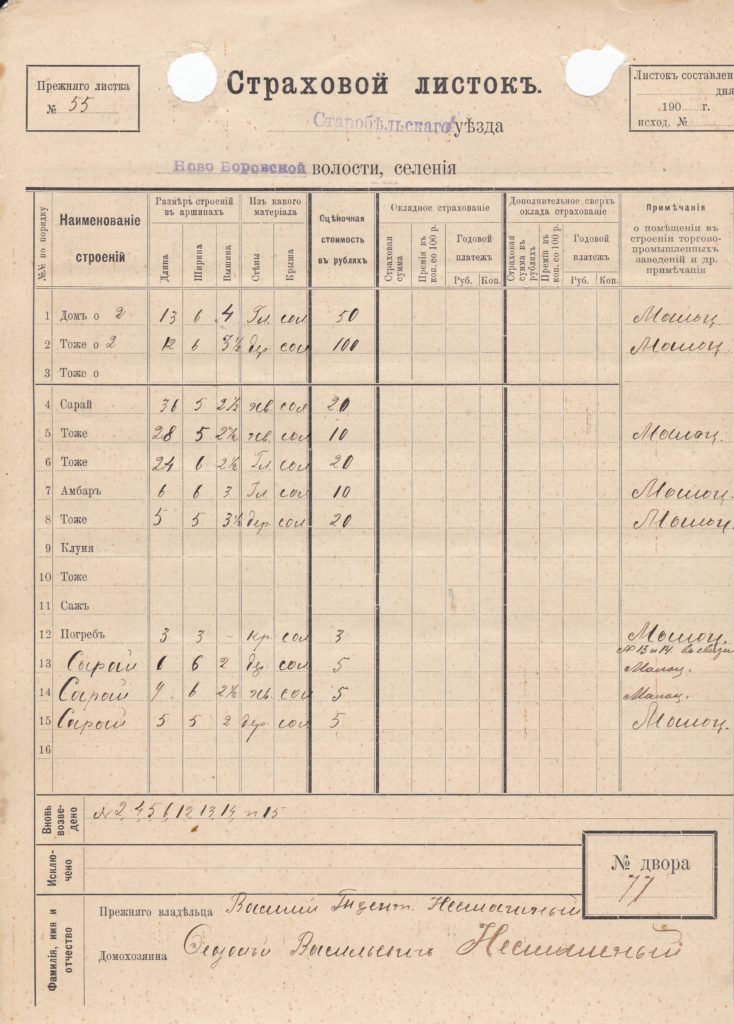 Прежняго листка
№ 55
Страховой листокъ.
Старобѣльскаго уѣзда
Ново Боровской волости, селенія
Листокъ составлен
дня
190 г.
исход. №
№№ по порядку
Наименованіе строеній
Размѣръ строеній въ аршинахъ
Длина
Ширина
Вышина
Изъ какого матеріала
Стѣны
Крыша
Оцѣночная стоимость въ рубляхъ
Окладное страхованіе
Страховая сумма
Премія въ коп. со 100 р.
Годовой платежъ
Руб. Коп.
Дополнительное сверхъ оклада страхованіе
Страховая сумма въ рубляхъ
Премія въ коп. со 100 р.
Годовой платежъ
Руб. Коп.
Примѣчанія
о помѣщеніи въ строеніи торгово-промышленныхъ заведеній и др. примѣчанія
1 Домъ о 2 13 6 4 Гл. сол 50
2 Тоже о 2 12 6 3½ дер сол 100
3 Тоже о
4 Сарай 36 5 2½ хв. сол 20
5 Тоже 28 5 2½ хв. сол 10
6 Тоже 24 6 2½ Гл сол 20
7 Амбаръ 6 6 3 Гл. сол 10
8 Тоже 5 5 3½ дер сол 20
9 Клуня
10 Тоже
11 Сажъ
12 Погребъ 3 3 - сол 3
№ 13 и 14 в связи
13 Сарай 6 2 сол 5
14 Сарай 6 2½ хв. сол 5
15 Сарай 5 5 2 дер сол 5
16
Вновь возведено
№ 2, 4, 5, 6, 12, 13, 14, и 15
Исключено
№ двора
77
Фамилія, имя и отчество
Прежняго владѣльца Василий
Домохозяина Васильевичъ